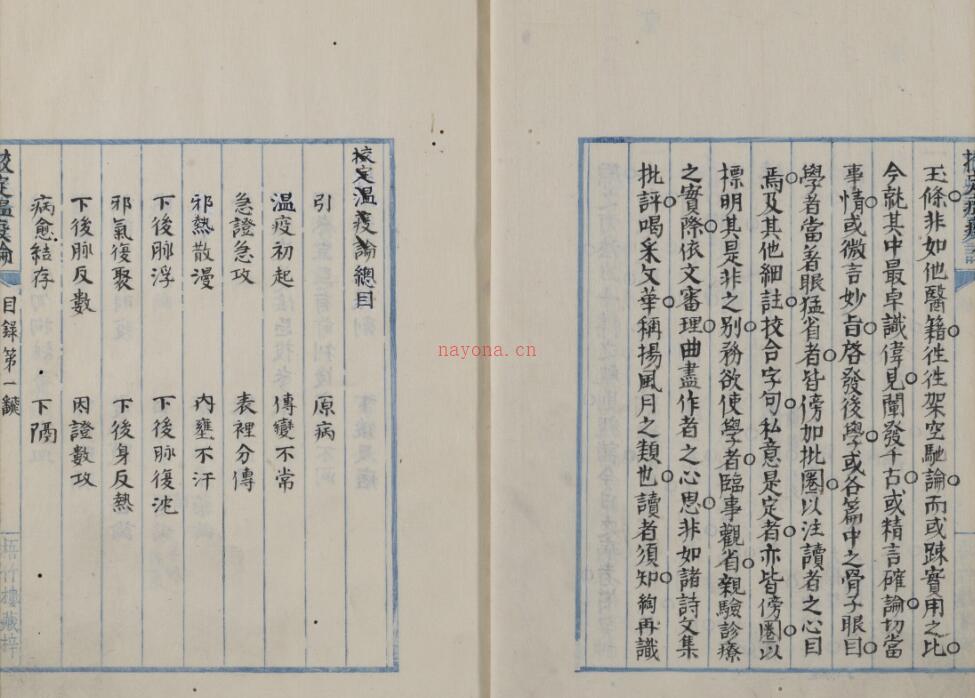 玉條非如他醫籍徃徃架空馳論而或踈實用之比
今就其中最卓識偉見闡發千古或精言確論切當
事情或微言妙旨啓發後學或各篇中之骨子眼目
學者當著眼猛省者皆傍加批圈以注讀者之心目
焉及其他細註挍合字句私意是定者亦皆傍圈以
標明其是非之別務欲使學者臨事觀省親驗診療
之實際依文審理曲盡作者之心思非如諸詩文集
批評喝采文華稱揚風月之類也讀者須知絢再識
挍定温疫論總目
引 原病
温疫初起 傳變不常
急證急攻 表裡分傳
邪熱散漫 内壅不汗
下後脉浮 下後脉復沈
邪氣復聚 下後身反熱
下後脉反數 因證數攻
病愈結存 下隔
挍定温疫論 目録第一 梧竹樓藏梓
nayona.cn